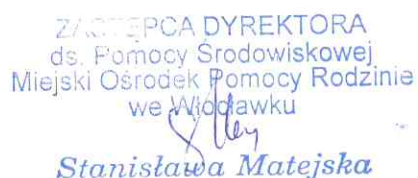 ZASTĘPCA DYREKTORA
ds. Pomocy Środowiskowej
Miejski Ośrodek Pomocy Rodzinie
we Włocławku
Stanisława Matejska